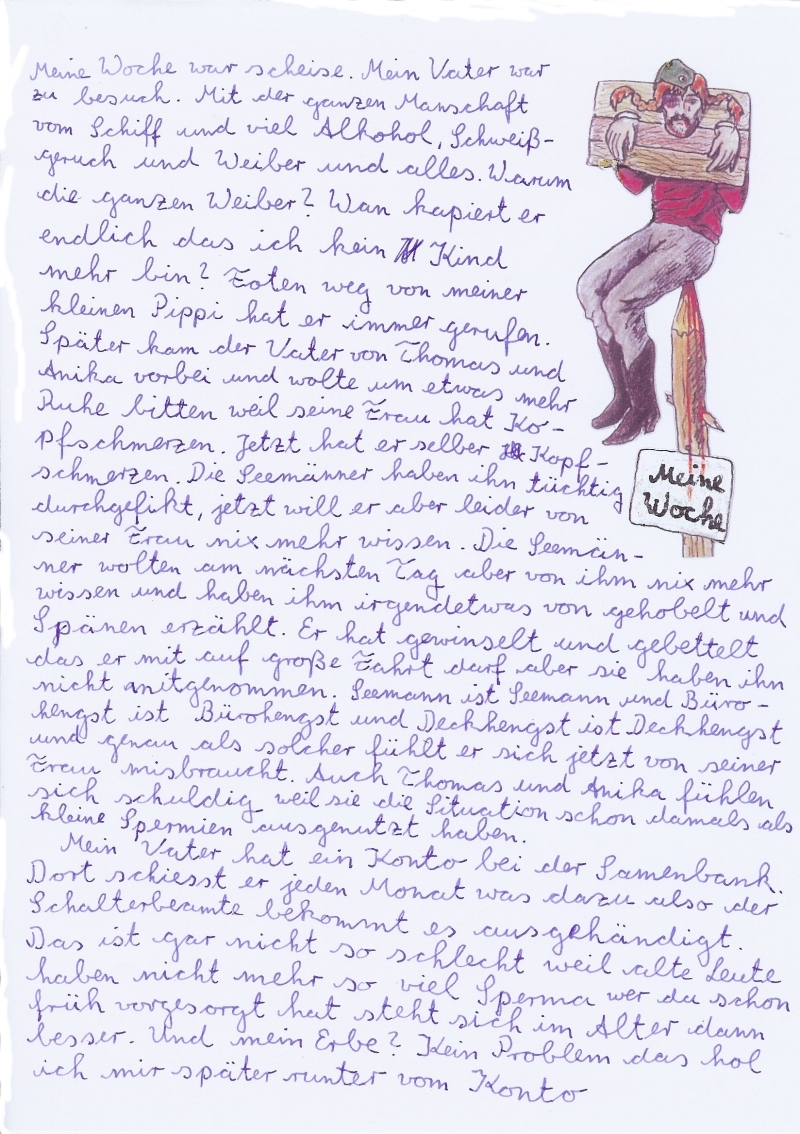 Meine Woche war scheise. Mein Vater war
zu besuch. Mit der ganzen Manschaft
vom Schiff und viel Alkohol, Schweiß-
geruch und Weiber und alles. Warum
die ganzen Weiber? Wan kapiert er
endlich das ich kein Kind
mehr bin? Foten weg von meiner
kleinen Pippi hat er immer gerufen.
Später kam der Vater von Thomas und
Anika vorbei und wolte um etwas mehr
Ruhe bitten weil seine Frau hat Ko-
pfschmerzen. Jetzt hat er selber Kopf-
schmerzen. Die Seemänner haben ihn tüchtig
durchgefikt, jetzt will er aber leider von
seiner Frau nix mehr wissen. Die Seemän-
ner wolten am nächsten Tag aber von ihm nix mehr
wissen und haben ihm irgendetwas von gehobelt und
Spänen erzählt. Er hat gewinselt und gebettelt
das er mit auf große Fahrt darf aber sie haben ihn
nicht mitgenommen. Seemann ist Seemann und Büro-
hengst ist Bürohengst und Deckhengst ist Deckhengst
und genau als solcher fühlt er sich jetzt von seiner
Frau misbraucht. Auch Thomas und Anika fühlen
sich schuldig weil sie die Situation schon damals als
kleine Spermien ausgenutzt haben.
Mein Vater hat ein Konto bei der Samenbank.
Dort schiesst er jeden Monat was dazu also der
Schalterbeamte bekommt es ausgehändigt.
Das ist gar nicht so schlecht weil alte Leute
haben nicht mehr so viel Sperma wer da schon
früh vorgesorgt hat steht sich im Alter dann
besser. Und mein Erbe? Kein Problem das hol
ich mir später runter vom Konto
Meine
Woche